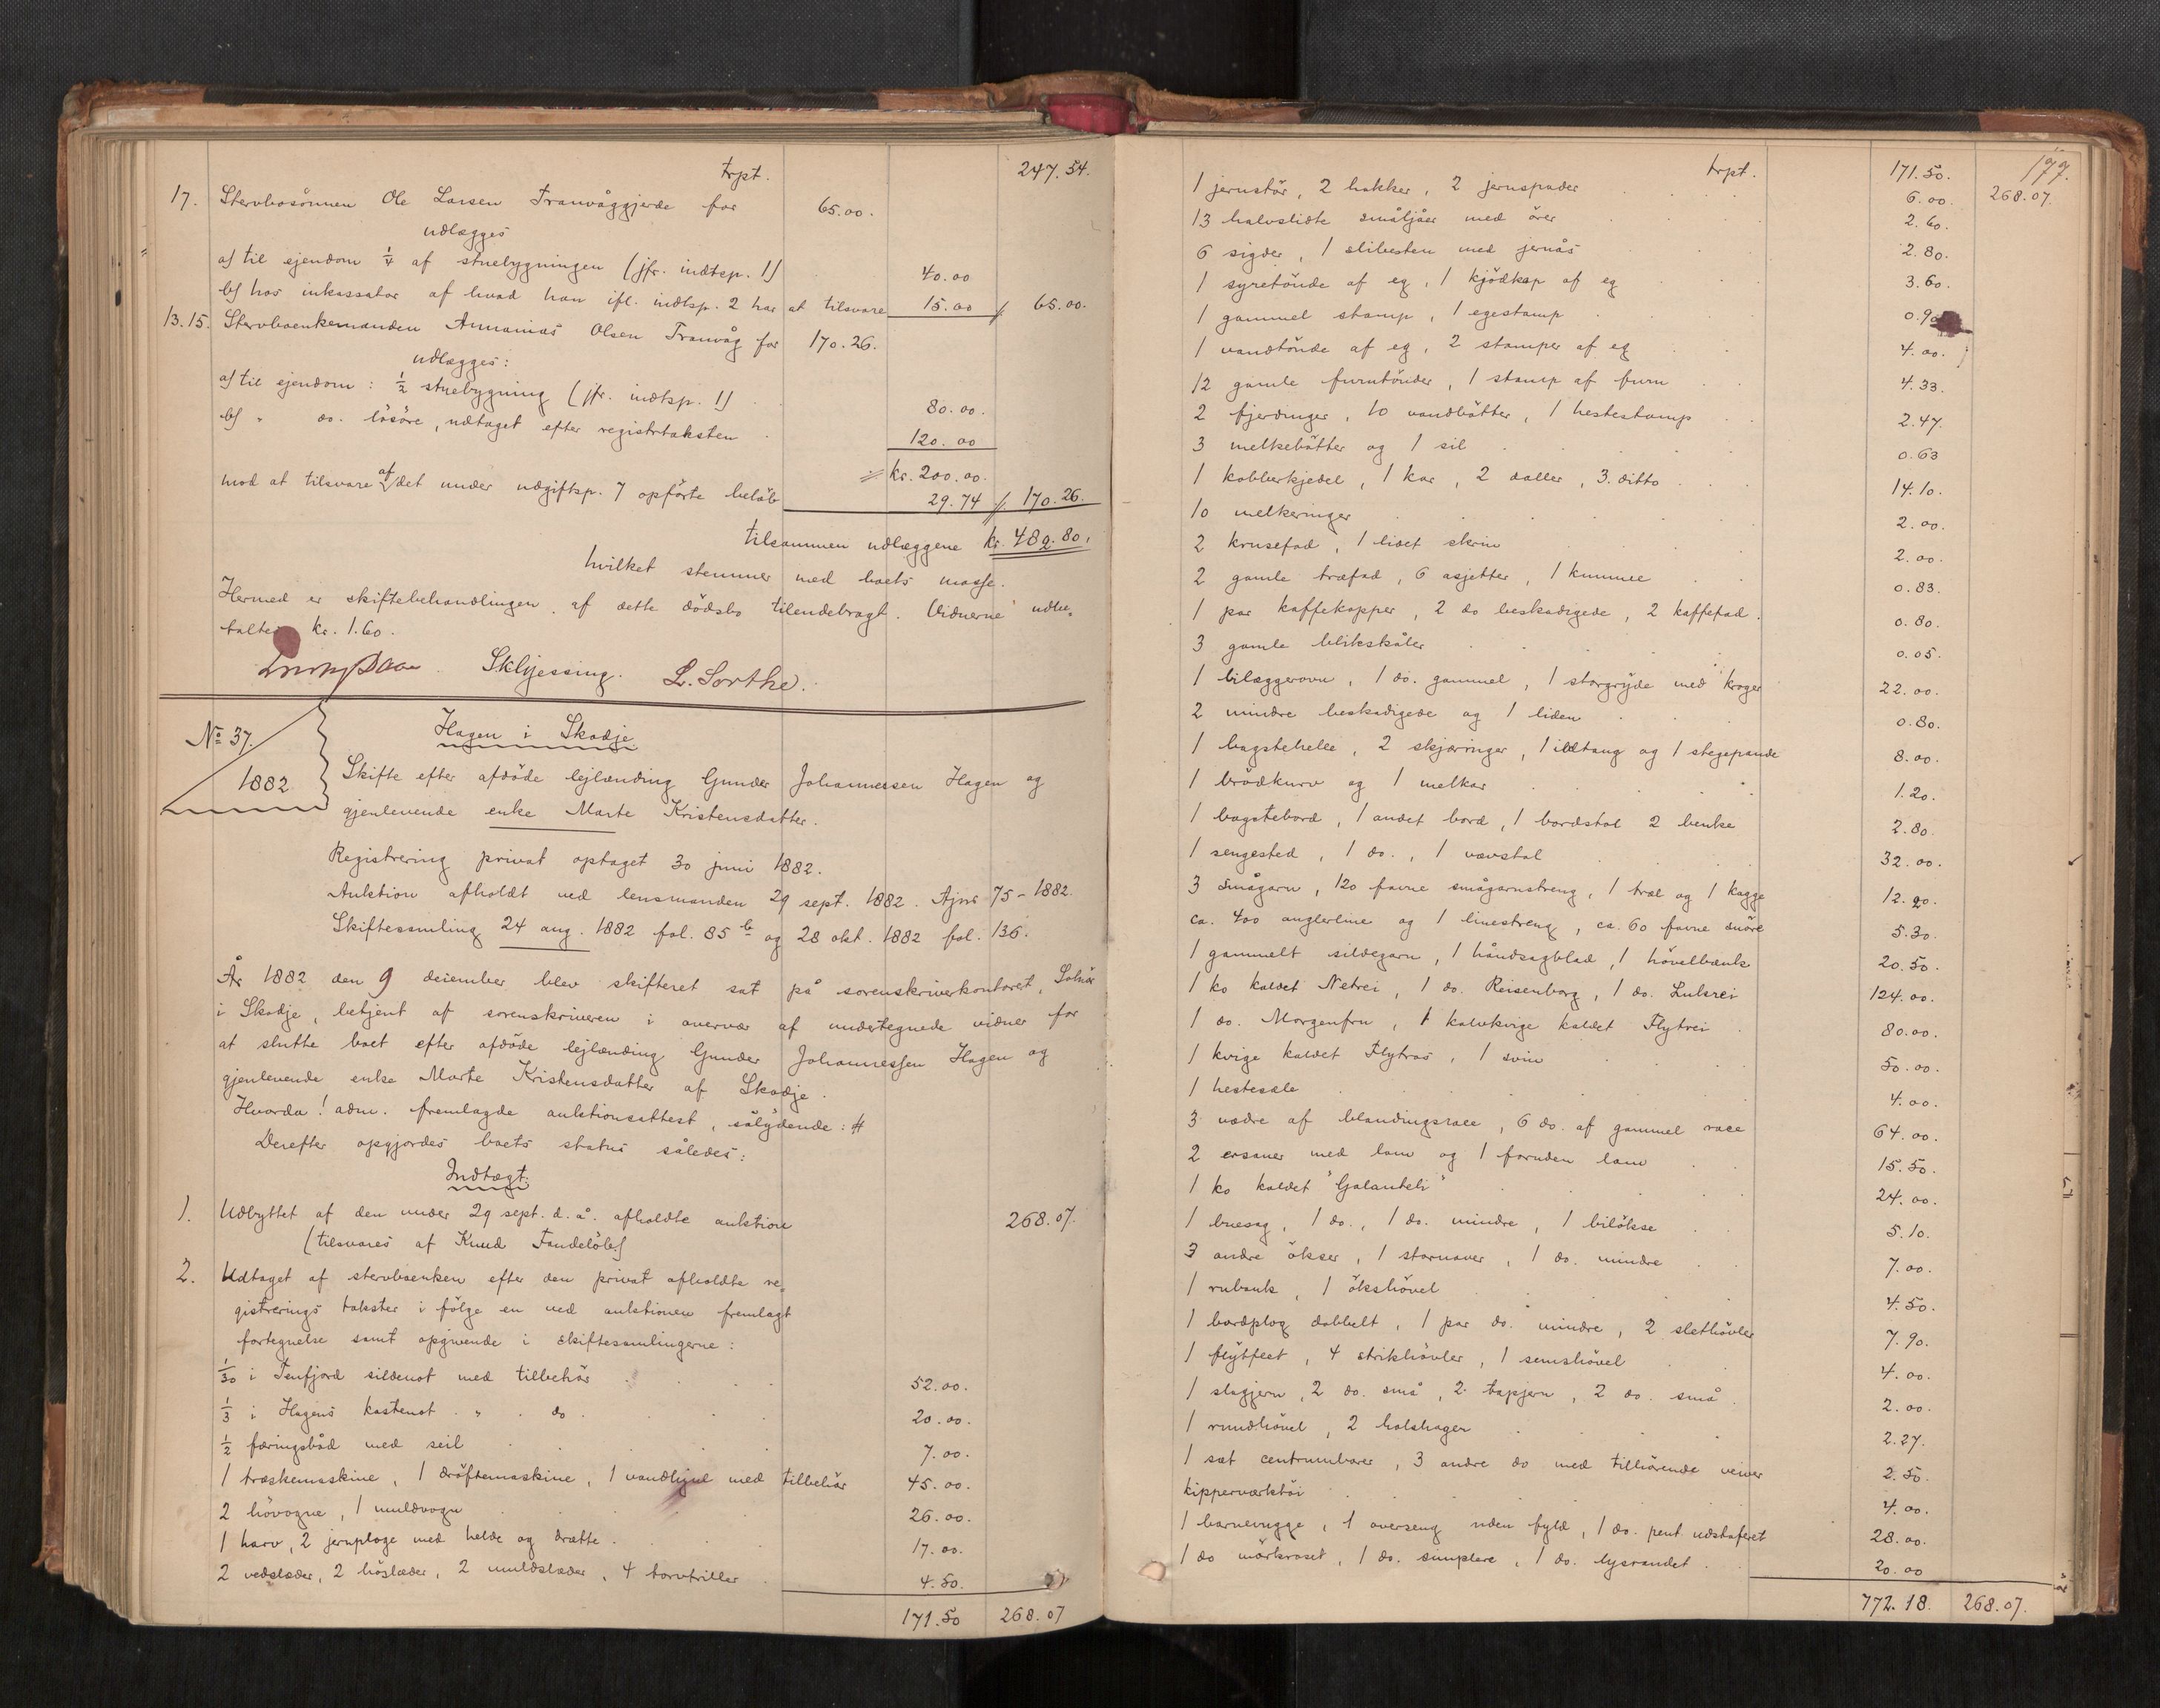 trpt. 247.54.
17. Stervbosönnen Ole Larsen Tranvåggjerde for 65.00.
udlægges
a) til ejendom 1/4 af stuebygningen (jfr. indtsp. 1) 40.00
b) hos inkassator af hvad han ifl. indtsp. 2 har at tilsvare 15.00 // 65.00.
13.15. Stervboenkemanden Annanias Olsen Tranvåg for 170.26.
udlægges:
a) til ejendom: 1/2 stuebygning (jfr. indtsp. 1) 80.00.
b) " do. lösöre, udtaget efter registrtaksten 120.00
kr. 200.00.
mod at tilsvare af det under udgiftsp. 7 opförte belöb 29.74 // 170.26.
tilsammen udlæggene kr. 482.80.
hvilket stemmer med boets masse.
Hermed er skiftebehandlingen af dette dödsbo tilendebragt. Vidnerne udbe-
taltes kr. 1.60.
L. Sorthe.
No 37.
1882
Hagen i Skodje
Skifte efter afdöde lejlænding Gunder Johannessen Hagen og
gjenlevende enke Marte Kristensdatter.
Registrering privat optaget 30 juni 1882.
Auktion afholdt ved lensmanden 29 sept. 1882. Ajnr 75 - 1882.
Skiftesamling 24 aug. 1882 fol. 85 b og 28 okt. 1882 fol. 136.
År 1882 den 9 december blev skifteret sat på sorenskriverkontoret, Solnör
i Skodje, betjent af sorenskriveren i overvær af undertegnede vidner for
at slutte boet efter afdöde lejlænding Gunder Johannessen Hagen og
gjenlevende enke Marte Kristensdatter af Skodje.
Hvorda! adm. fremlagde auktionsattest, sålydende: #
Derefter opgjordes boets status således:
Indtægt.
1. Udbyttet af den under 29 sept. d. å. afholdte auktion 268.07.
(tilsvares af Knud Fandelöb)
2. Udtaget af stervboenken efter den privat afholdte re-
gistrerings takster i fölge en ved auktionen fremlagt
fortegnelse samt opgivende i skiftesamlingerne:
1/30 i Tenfjord sildenot med tilbehör 52.00.
1/3 i Hagens kastenot " do. 20.00.
1/2 færingsbåd med seil 7.00.
1 træskemaskine, 1 dröftemaskine, 1 vandhjul med tilbehör 45.00.
2 hövogne, 1 muldvogn 26.00.
1 harv, 2 jernploge med helde og drætte 17.00.
2 vedslæder, 2 höslæder, 2 muldslæder, 4 torvtriller 4.50.
171.50 268.07
177.
trpt. 171.50. 268.07.
1 jernstör, 2 hakker, 2 jernspader 6.00.
13 halvslidte småljåer med örer 2.60.
6 sigder, 1 slibesten med jernås 2.80.
1 syretönde af eg, 1 kjödkap af eg 3.60.
1 gammel stamp, 1 egestamp 0.90
1 vandtönde af eg, 2 stamper af eg 4.00.
12 gamle furutönder, 1 stamp af furu 4.33.
2 fjerdinger, 10 vandbötter, 1 hestestamp 2.47.
3 melkebötter og 1 sil 0.63
1 kobberkjedel, 1 kar, 2 daller, 3. ditto 14.10.
10 melkeringer 2.00.
2 krusefad, 1 lidet skrin 2.00.
2 gamle træfad, 6 asjetter, 1 kumme 0.83.
1 par kaffekopper, 2 do beskadigede, 2 kaffefad. 0.80.
3 gamle blikskåler 0.05.
1 bilæggerovn, 1 do. gammel, 1 storgryde med kroger 22.00.
2 mindre beskadigede og 1 liden 0.80.
1 bagstehelle, 2 skjæringer, 1 ildtang og 1 stegepande 8.00.
1 brödkurv og 1 melkar 1.20.
1 bagstebord, 1 andet bord, 1 bordstol 2 benke 2.80.
1 sengested, 1 do., 1 vævstol 32.00.
3 smågarn, 120 favne smågarnstreng, 1 træl og 1 kagge 12.20.
ca. 400 anglerline og 1 linestreng, ca. 60 favne snöre 5.30.
1 gammelt sildegarn, 1 håndsagblad, 1 hövelbænk 20.50.
1 ko kaldet Netrei, 1 do. Reisenborg, 1 do. Luksrei 124.00.
1 do. Morgenfru, 1 kalvkvige kaldet Flytrei 80.00.
1 kvige kaldet Flytros, 1 svin 50.00.
1 hestesæle 4.00.
3 vædre af blandingsrace, 6 do. af gammel race 64.00.
2 ersauer med lam og 1 foruden lam 15.50.
1 ko kaldet "Galanteli" 24.00.
1 buesag, 1 do., 1 do. mindre, 1 bilökse 5.10.
3 andre ökser, 1 stornaver, 1 do. mindre 7.00.
1 rubank, 1 ökshövel 4.50.
1 bordplog dobbelt, 1 par do. mindre, 2 slethövler 7.90.
1 flytfeet, 4 strikhövler, 1 semshövel 4.00.
1 slagjern, 2 do. små, 2 tapjern, 2 do. små 2.00.
1 rundhövel, 2 halshager 2.27.
1 sæt centrumborer, 3 andre do med tilhörende veiver 2.50.
kipperværktöi 4.00.
1 barnevugge, 1 overseng uden fyld, 1 do. pent udstaferet 28.00.
1 do mörkroset, 1 do. simplere, 1 do. lysrandet 20.00
772.18. 268.07.